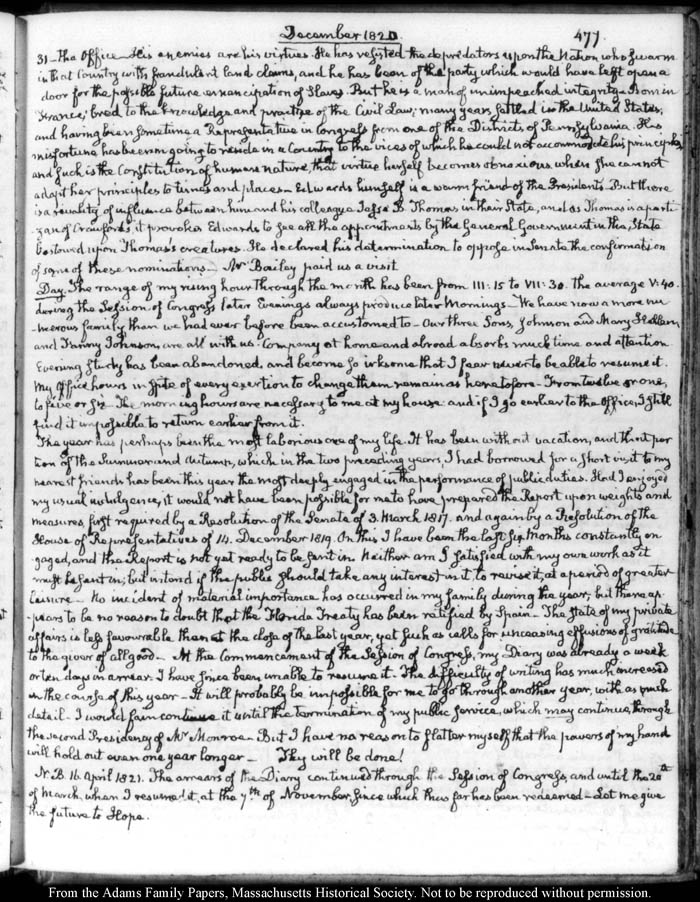 December 1820.
477
31 – the Office – His enemies are his virtues. He has resisted the depredators upon the Nation who swarm
in that Country with fraudulent land claims, and he has been of the party which would have left open a
door for the possible future emancipation of Slaves. But he is a man of unimpeached integrity – born in
France; bred to the knowledge and practice of the Civil Law; many years settled in the United States,
and having been sometime a Representative in Congress from one of the Districts of Pennsylvania. His
misfortune has been in going to reside in a Country to the vices of which he could not accommodate his principles,
and such is the Constitution of human nature, that virtue herself becomes obnoxious when she cannot
adapt her principles to times and places – Edwards himself is a warm friend of the Presidents – But there
is a rivality of influence between him and his colleague Jesse B. Thomas in their State, and as Thomas is a parti-
-zan of Crawford's, it provokes Edwards to see all the appointments by the General Government in the State
bestowed upon Thomas's creatures. He declared his determination to oppose in Senate the confirmation
of some of these nominations – Mr Bailey paid us a visit
Day. The range of my rising hour through the month has been from III:15 to VII:30. the average V:40.
during the Session of Congress later Evenings always produce later Mornings – We have now a more nu-
-merous family than we had ever before been accustomed to – Our three Sons, Johnson and Mary Hellen
and Fanny Johnson, are all with us. Company at home and abroad absorbs much time and attention
Evening study has been abandoned, and become so irksome that I fear never to be able to resume it.
My Office hours in spite of every exertion to change them remain as heretofore – From twelve or one,
to five or six. The morning hours are necessary to me at my house and if I go earlier to the Office, I still
find it impossible to return earlier from it.
The year has perhaps been the most laborious one of my life. It has been without vacation, and that por-
tion of the Summer and Autumn, which in the two preceding years, I had borrowed for a short visit to my
nearest friends has been this year the most deeply engaged in the performance of public duties. Had I enjoyed
my usual indulgence, it would not have been possible for me to have prepared the Report upon weights and
measures, first required by a Resolution of the Senate of 3. March 1817. and again by a Resolution of the
House of Representatives of 14. December 1819. On this I have been the last six Months constantly en-
gaged, and the Report is not yet ready to be sent in. Neither am I satisfied with my own work as it
must be sent in; but intend if the public should take any interest in it, to revise it, at a period of greater
leisure – No incident of material importance has occurred in my family during the year, but there ap-
-pears to be no reason to doubt that the Florida Treaty has been ratified by Spain – The state of my private
affairs is less favourable than at the close of the last year, yet such as calls for unceasing effusions of gratitude
to the giver of all good – At the Commencement of the Session of Congress, my Diary was already a week
or ten days in arrear. I have since been unable to resume it – The difficulty of writing has much increased
in the course of this year – It will probably be impossible for me to go through another year, with as much
detail – I would fain continue it until the termination of my public service, which may continue, through
the second Presidency of Mr Monroe – But I have no reason to flatter myself that the powers of my hand
will hold out even one year longer – Thy will be done!
N. B. 16. April 1821. The arrears of the Diary continued through the Session of Congress, and until the 20th
of March, when I resumed it, at the 7th of November, since which thus far has been redeemed – Let me give
the future to Hope.
From the Adams Family Papers, Massachusetts Historical Society. Not to be reproduced without permission.